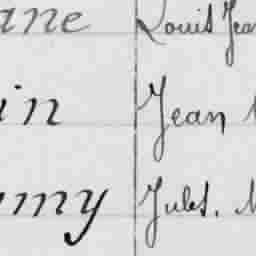 ane Louis Jea
in Jean
my Jules. M